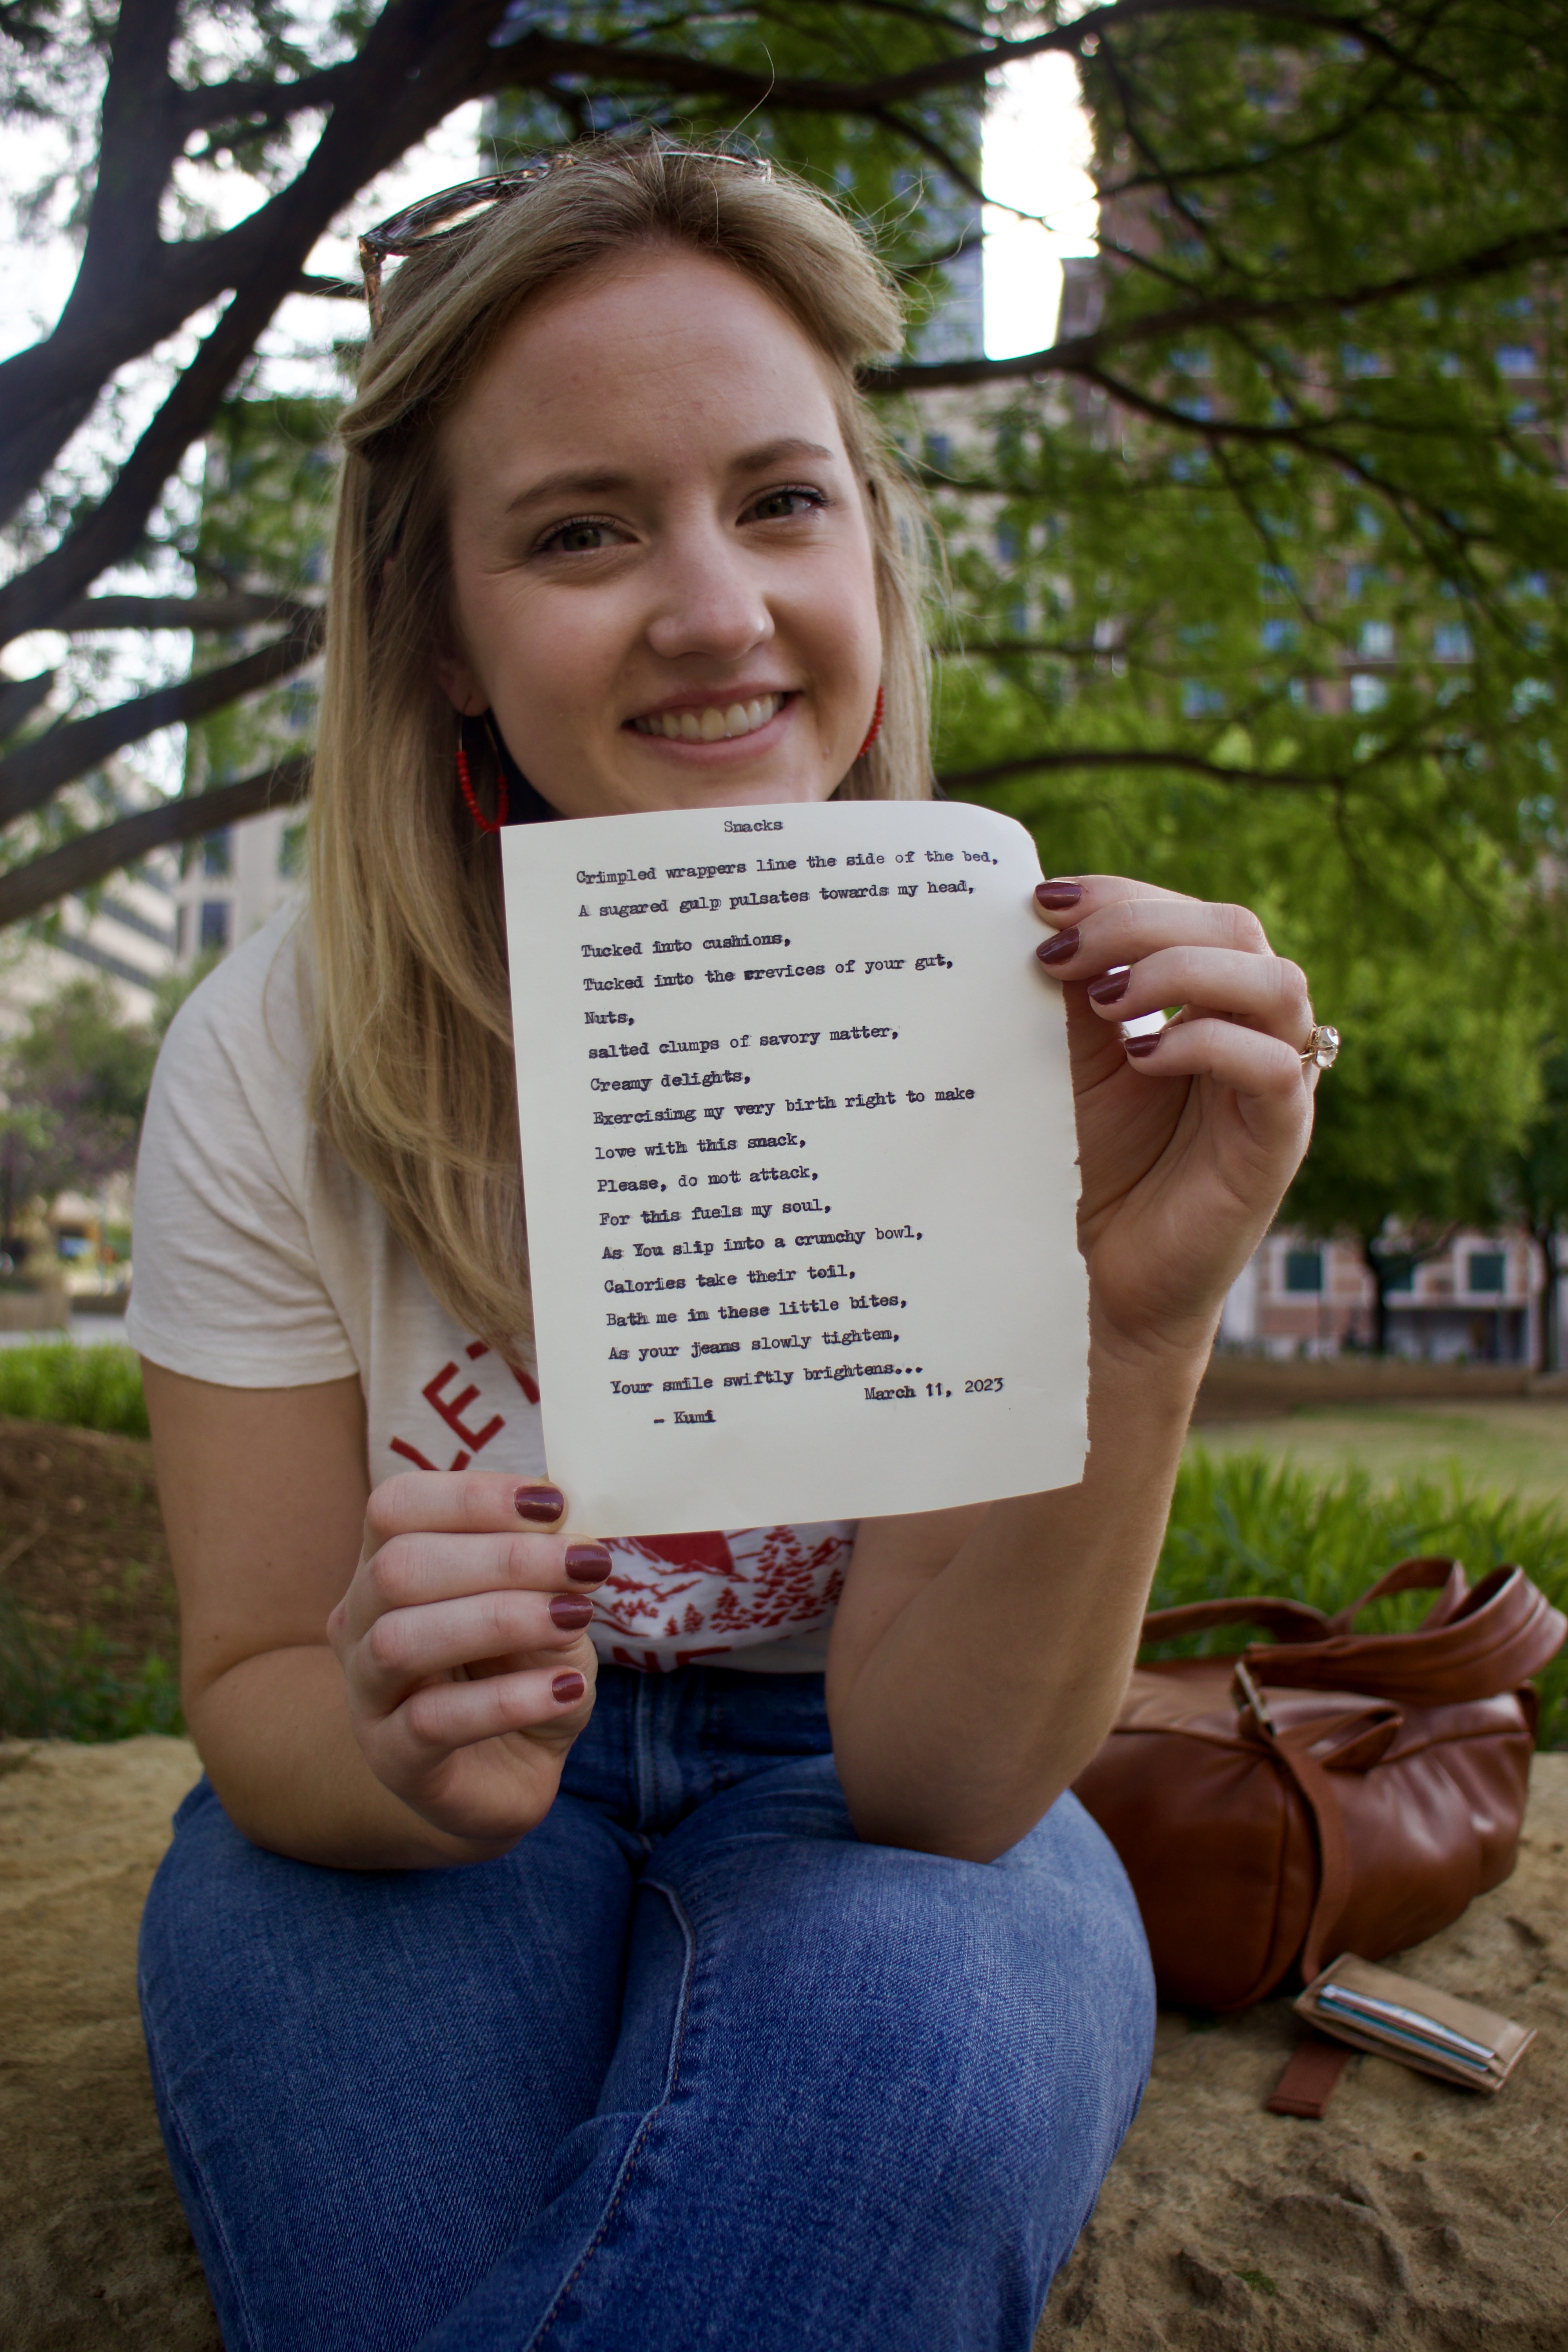 Snacks
Crimpled wrappers line the side of the bed,
A sugared gulp pulsates towards my head,
Tucked into cushions,
Tucked into the crevices of your gut,
Nuts,
salted clumps of savory matter,
Creamy delights,
Exercising my very birth right to make
love with this snack,
Please, do not attack,
For this fuels my soul,
As You slip into a crunchy bowl,
Calories take their toil,
Bath me in these little bites,
As your jeans slowly tighten,
Your smile swiftly brightens...
March 11, 2023
- Kumi